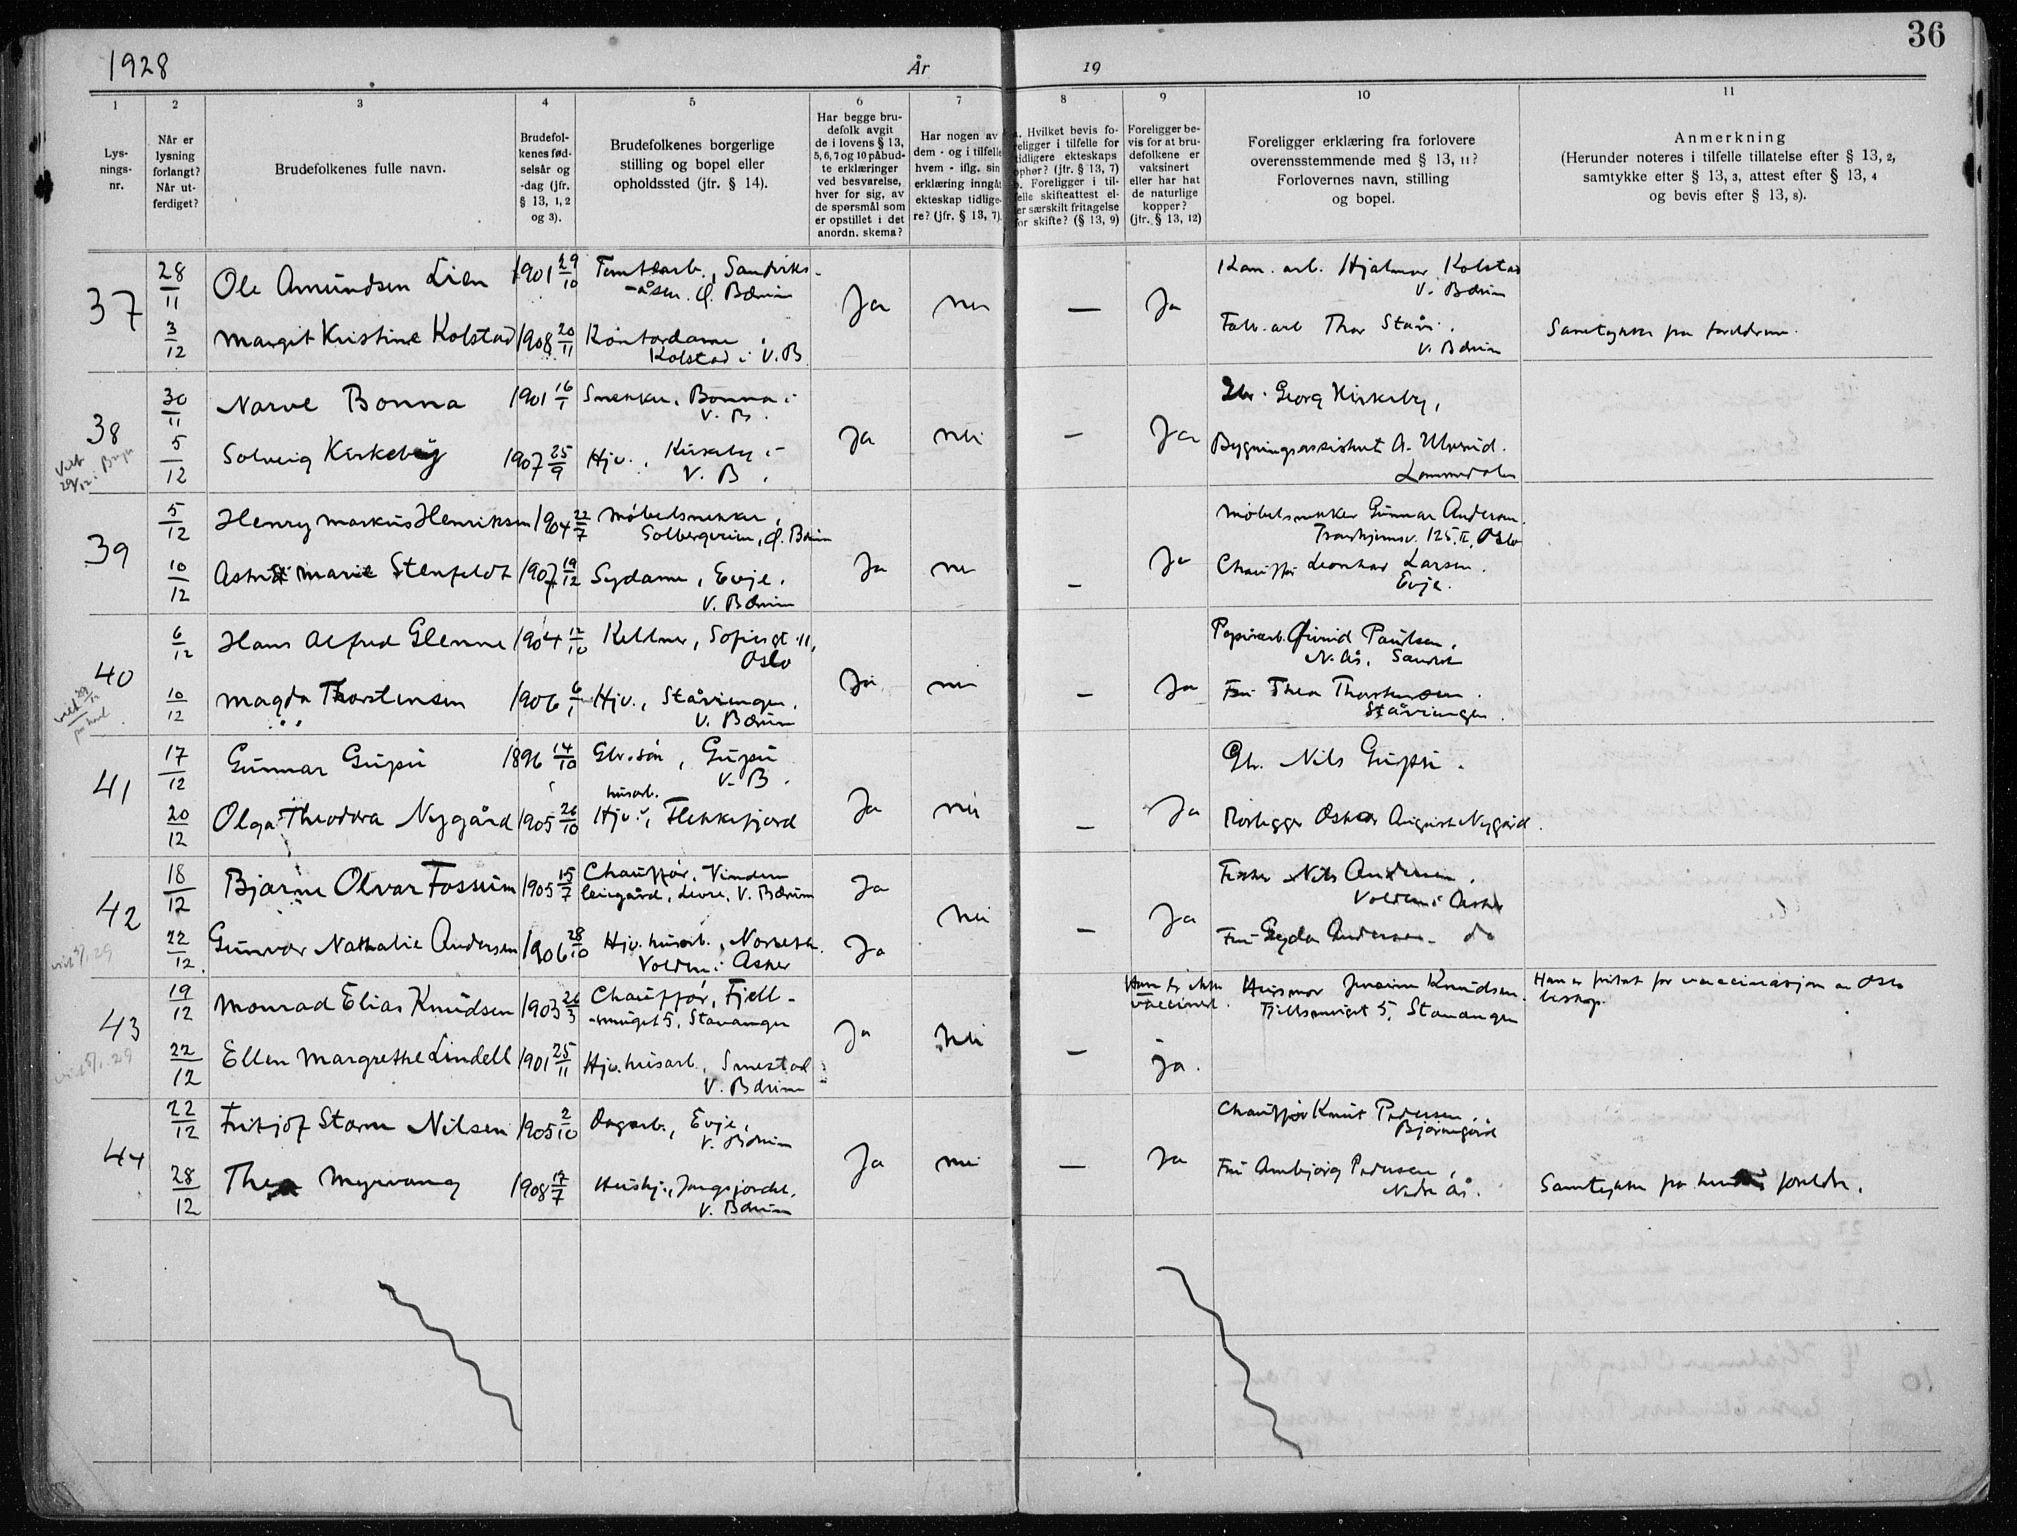 36
1928
År
19
1
2
3
4
5
6
7
8
9
10
11
Lys-
nings-
nr.
Når er
lysning
forlangt?
Når ut-
ferdiget?
Brudefolkenes fulle navn.
Brudefol-
kenes fød-
selsår og
-dag (jfr.
§ 13, 1, 2
og 3).
Brudefolkenes borgerlige
stilling og bopel eller
opholdssted (jfr. § 14).
Har begge bru-
defolk avgit
de i lovens § 13,
5, 6, 7 og 10 påbud-
te erklæringer
ved besvarelse,
hver for sig, av
de spørsmål som
er opstillet i det
anordn. skema?
Har nogen av
dem - og i tilfelle
hvem - iflg. sin
erklæring inngåt
ekteskap tidlige-
re? (jfr. § 13, 7).
Hvilket bevis fo-
religger i tilfelle for
tidligere ekteskaps
ophør? (jfr. § 13, 7)
Foreligger i til-
felle skifteattest el-
ler særskilt fritagelse
for skifte? (§ 13, 9)
Foreligger be-
vis for at bru-
defolkene er
vaksinert
eller har hat
de naturlige
kopper?
(jfr. § 13, 12)
Foreligger erklæring fra forlovere
overensstemmende med § 13, 11?
Forlovernes navn, stilling
og bopel.
Anmerkning
(Herunder noteres i tilfelle tillatelse efter § 13, 2,
samtykke efter § 13, 3, attest efter § 13, 4
og bevis efter § 13, 8).
37
28/11
Ole Amundsen Lien
1901 29/10
Tomtearb., Sandviks-
-åsen. Ø. Bærum
Ja
nei
—
Ja
Kom. arb. Hjalmar Kolstad
V. Bærum
3/12
Margit Kristine Kolstad
1908 20/11
Kontordame,
Kolstad i V. B.
Fabr. arb Thor
V. Bærum
Samtykke fra foreldrene.
38
30/11
Narve Bonna
1901 16/1
Snekker, Bonna i
V. B.
Ja
nei
—
Ja
Gbr. Georg Kirkeby,
5/12
Solveig Kirkeby
1907 25/9
Hjv., Kirkeby i
V. B.
Bygningsassistent A. Ulverud.
Lommedalen
39
5/12
Henry Markus Henriksen
1904 22/7
Møbelsnekker,
Solbergveien, Ø. Bærum
Ja
nei
—
Ja
Møbelsnekker Gunnar Andersen.
Trondhjemsv. 125 II, Oslo
10/12
Astrid Marie Stenfeldt
1907 19/12
Sydame, Evje.
V. Bærum
Chauffør Leonhar Larsen.
Evje.
40
6/12
Hans Alfred Glenne
1904 12/10
Kellner, Sofiesgt. 11,
Oslo
Ja
nei
—
Ja
Papirarb. Øivind Paulsen,
N. Ås, Sandvik
10/12
Magda Thorstensen
1906 6/1
Hjv., Ståvivngen.
V. Bærum
Fru Thea Thorstensen.
41
17/12
Gunnar Gupu
1896 14/10
Gbr. søn, Gupu
V. B.
Ja
nei
—
Ja
Gbr. Nils Gupu.
20/12
Olga Theodora Nygård
1905 26/10
husarb.
Hjv., Flekkefjord
Rørlegger Oskar August Nygård.
42
18/12
Bjarne Olvar Fossum
1905 15/7
Chauffør, Vinderen
leiegård, Levre, V. Bærum
Ja
nei
—
Ja
Fisker Nils Andersen.
Volden i Asker
22/12
Gunvor Nathalie Andersen
1906 28/10
Hjv. husarb.,
Volden i Asker
Ja
Fru Gyda Andersen. do
43
19/12
Monrad Elias Knudsen
1903 26/3
Chauffør, Fjell-
-smuget 5, Stavanger
Ja
nei
—
Han er ikke
vaccinert.
Husmor Knudsen.
Fjellsmuget 5, Stavanger
Han er fritat for vaccinasjon av Oslo
biskop.
22/12
Ellen Margrethe Lindell
1901 25/11
Hjv. husarb., Smestad
V. Bærum
ja.
44
22/12
Fritjof Storm Nilsen
1905 2/10
Dagarb., Evje,
V. Bærum
Ja
nei
—
Ja
Chauffør Knut Pedersen,
Bjørnegård
28/12
Thea Myrvang
1908 17/7
Hushj., Jongsjordet.
V. Bærum
Fru Annbjørg Pedersen,
Nedre Ås.
Samtykke fra hendes foreldre.